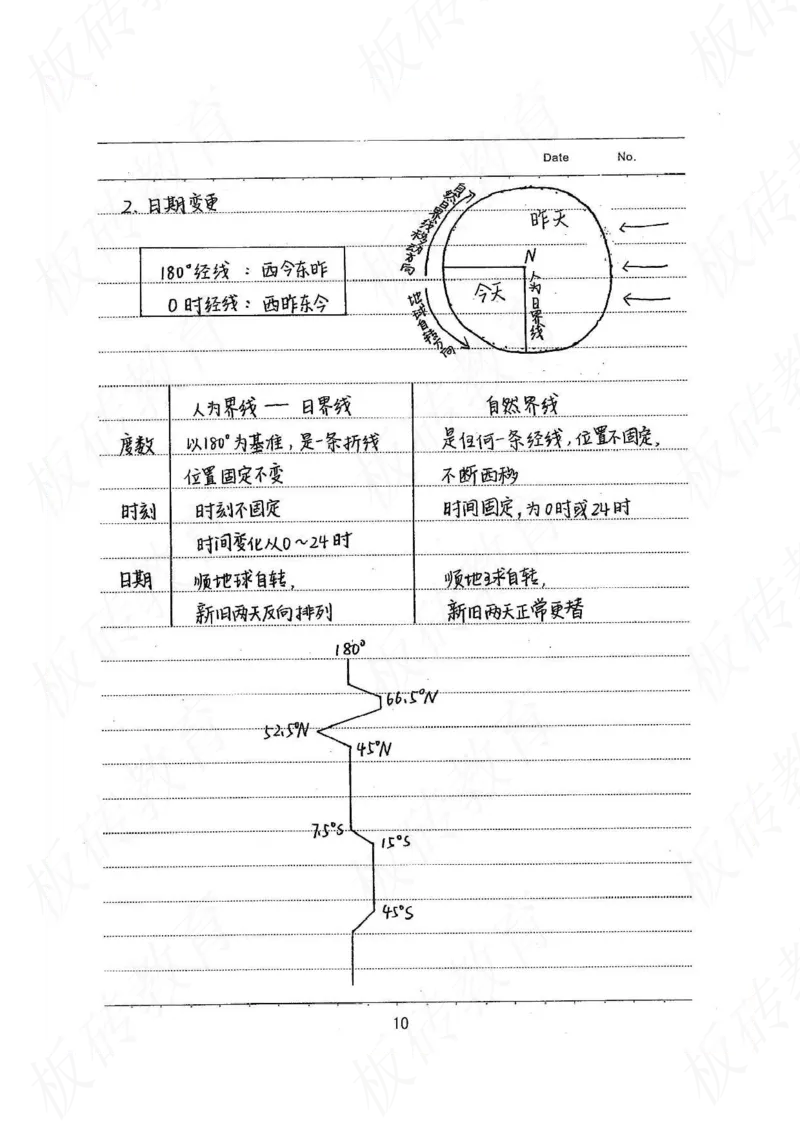 Date No.
2. 日期变更
180°经线：西今东昨
0时经线：西昨东今
自然日界线移动方向
昨天
N
今天
人为日界线
地球自转方向
人为界线 — 日界线 自然界线
度数 以180°为基准，是一条折线 是任何一条经线，位置不固定，
位置固定不变 不断西移
时刻 时刻不固定 时间固定，为0时或24时
时间变化从0～24时
日期 顺地球自转， 顺地球自转，
新旧两天反向排列 新旧两天正常更替
180°
66.5°N
52.5°N
45°N
7.5°S
15°S
45°S
10
板砖教育